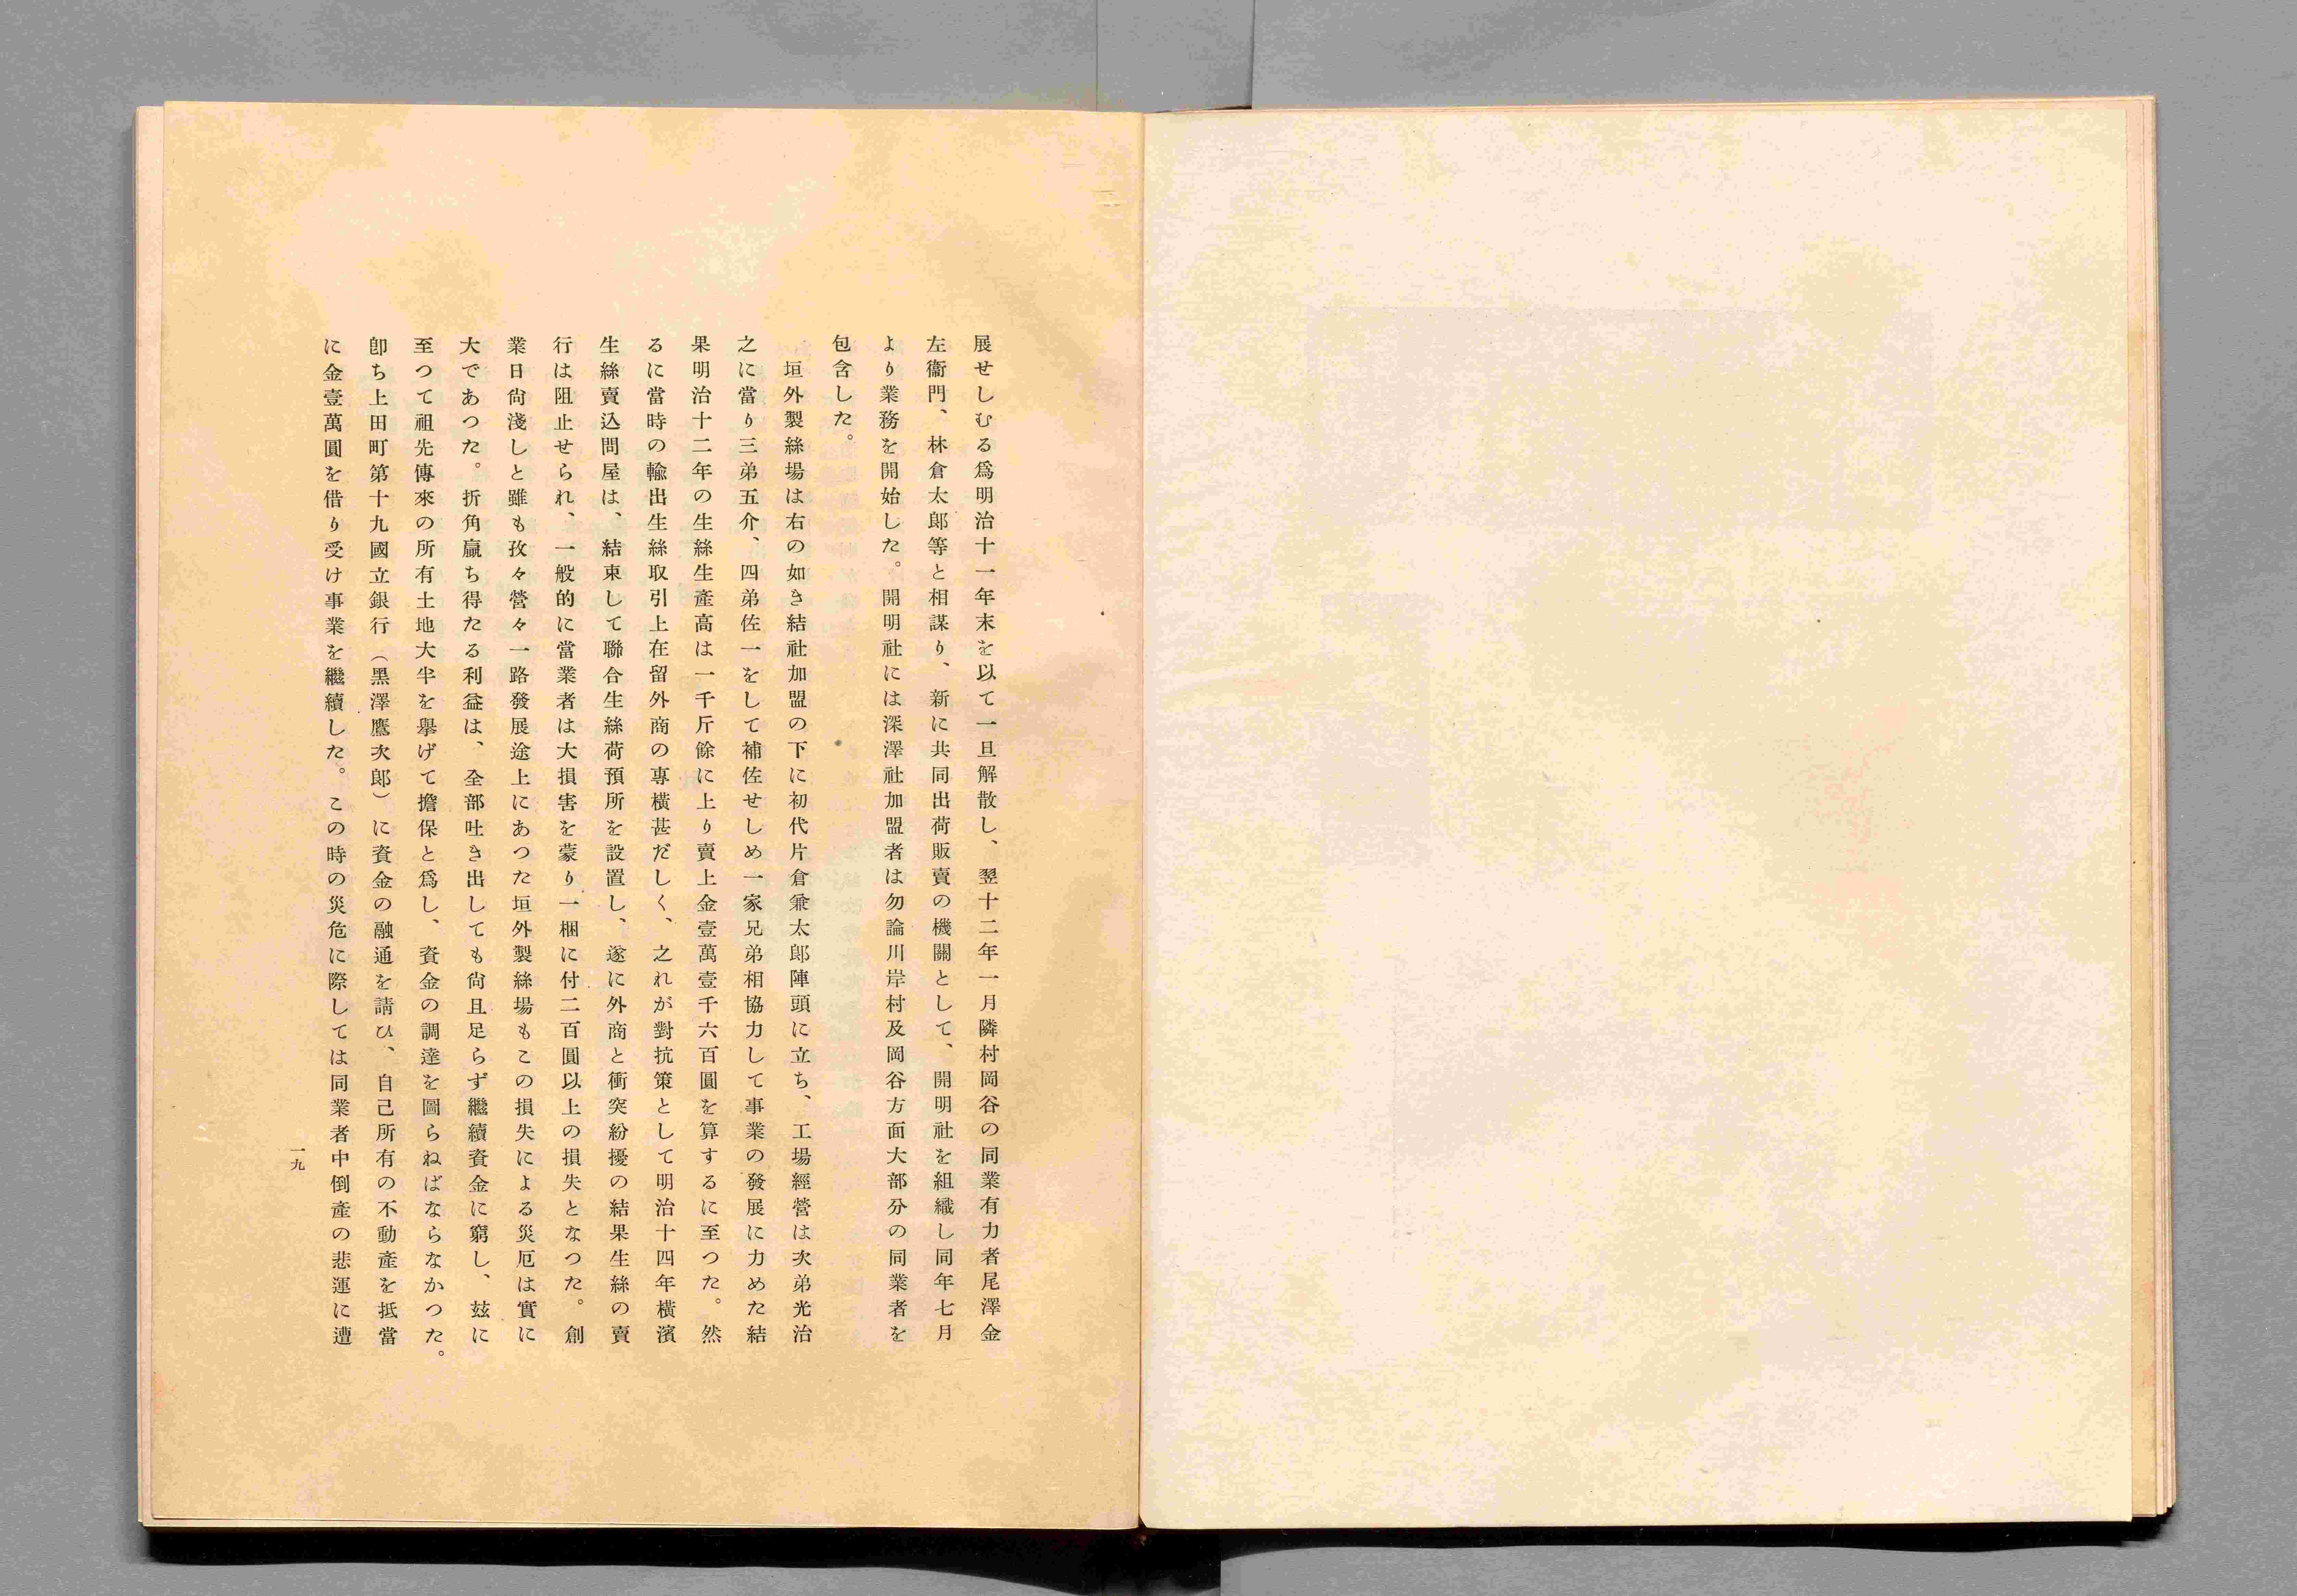 展せしむる爲明治十一年末を以て一旦解散し、翌十二年一月隣村岡谷の同業有力者尾澤金
左衞門、林倉太郎等と相謀り、新に共同出荷販賣の機關として、開明社を組織し同年七月
より業務を開始した。開明社には深澤社加盟者は勿論川岸村及岡谷方面大部分の同業者を
包含した。
垣外製絲場は右の如き結社加盟の下に初代片倉兼太郎陣頭に立ち、工場經營は次弟光治
之に當り三弟五介、四弟佐一をして補佐せしめ一家兄弟相協力して事業の發展に力めた結
果明治十二年の生絲生產高は一千斤餘に上り賣上金壹萬壹千六百圓を算するに至つた。然
るに當時の輸出生絲取引上在留外商の專橫甚だしく、之れが對抗策として明治十四年橫濱
生絲賣込問屋は、結束して聯合生絲荷預所を設置し、遂に外商と衝突紛擾の結果生絲の賣
行は阻止せられ、一般的に當業者は大損害を蒙り一梱に付二百圓以上の損失となつた。創
業日尙淺しと雖も孜々營々一路發展途上にあつた垣外製絲場もこの損失による災厄は實に
大であつた。折角贏ち得たる利益は、全部吐き出しても尙且足らず繼續資金に窮し、玆に
至つて祖先傳來の所有土地大半を擧げて擔保と爲し、資金の調達を圖らねばならなかつた。
卽ち上田町第十九國立銀行（黑澤鷹次郎）に資金の融通を請ひ、自己所有の不動產を抵當
に金壹萬圓を借り受け事業を繼續した。この時の災危に際しては同業者中倒產の悲運に遭
一九